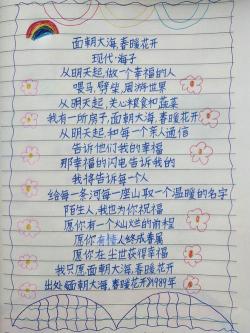 面朝大海,春暖花开
现代·海子
从明天起,做一个幸福的人
喂马,劈柴,周游世界
从明天起,关心粮食和蔬菜
我有一所房子,面朝大海,春暖花开
从明天起,和每一个亲人通信
告诉他们我的幸福
那幸福的闪电告诉我的
我将告诉每个人
给每一条河每一座山取个温暖的名字
陌生人,我也为你祝福
愿你有一个灿烂的前程
愿你有情人终成眷属
愿你在尘世获得幸福
我只愿面朝大海,春暖花开
出处《面朝大海,春暖花开》1989年